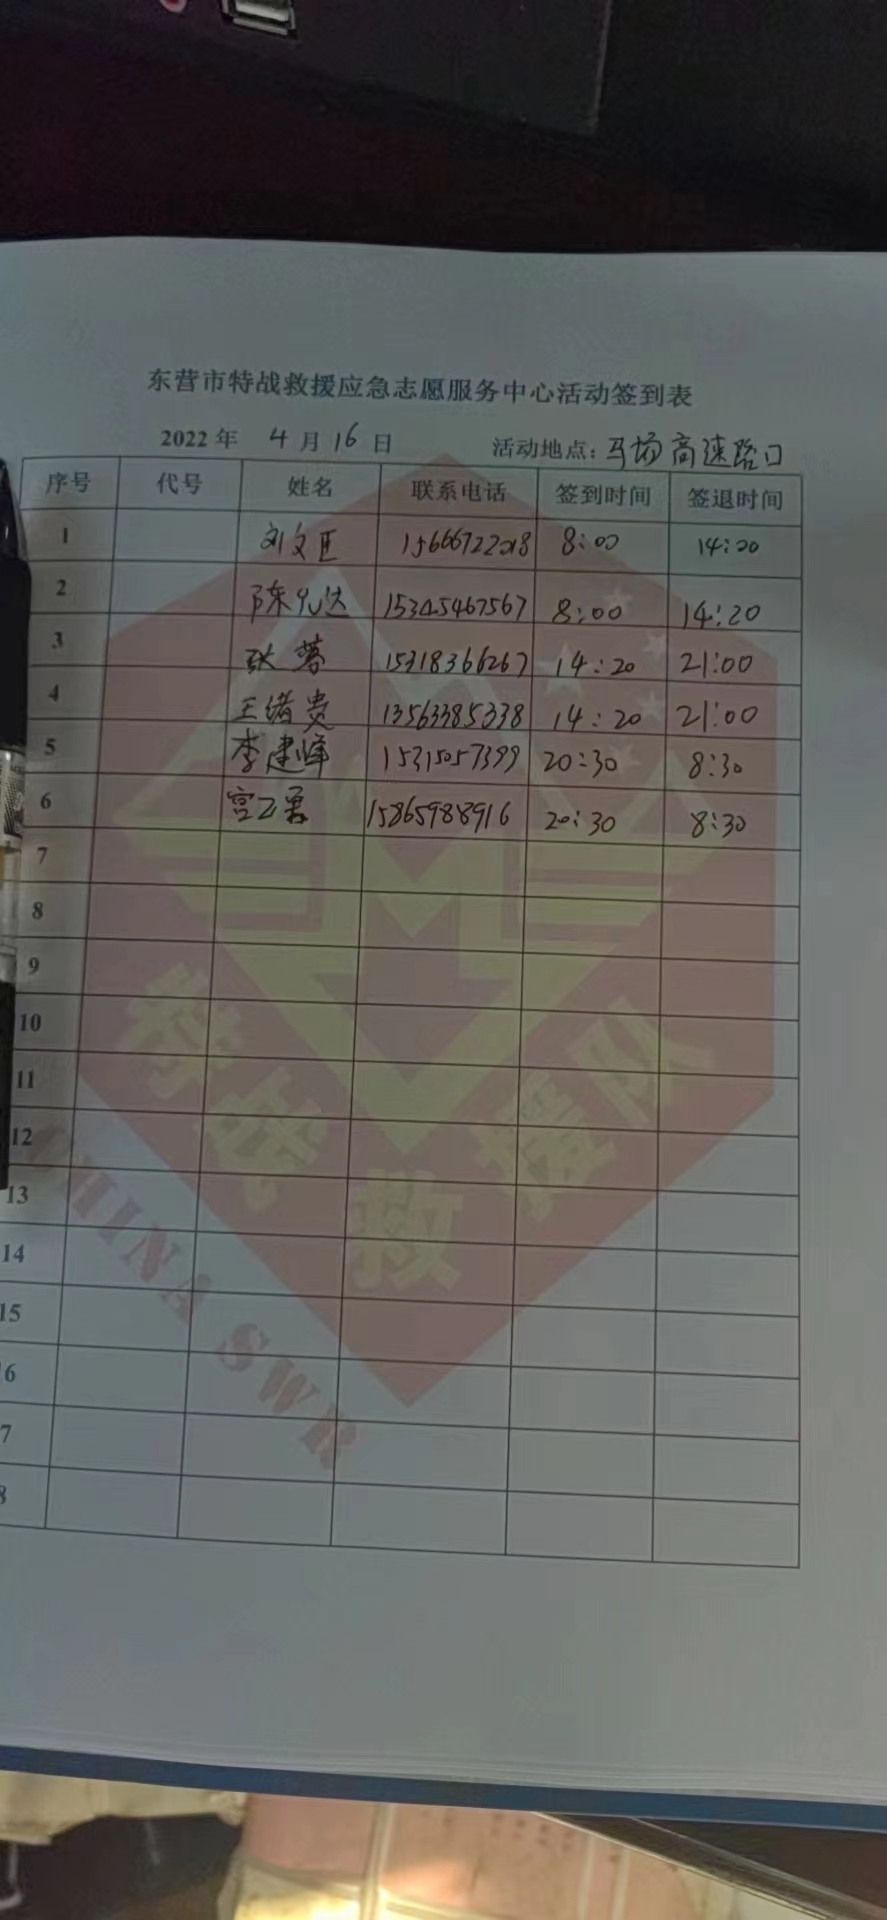 东营市特战救援应急志愿服务中心活动签到表
2022 年 4 月 16 日 活动地点: 马场高速路口
序号 代号 姓名 联系电话 签到时间 签退时间
1 刘文 15666722018 8:00 14:20
2 陈允达 15345467567 8:00 14:20
3 张蓉 15318366267 14:20 21:00
4 王绪贵 13563385338 14:20 21:00
5 李建峰 15315057399 20:30 8:30
6 宫 15865988916 20:30 8:30
7
8
9
10
11
12
13
14
15
6
7
8
特战救援队
CHINA SWR